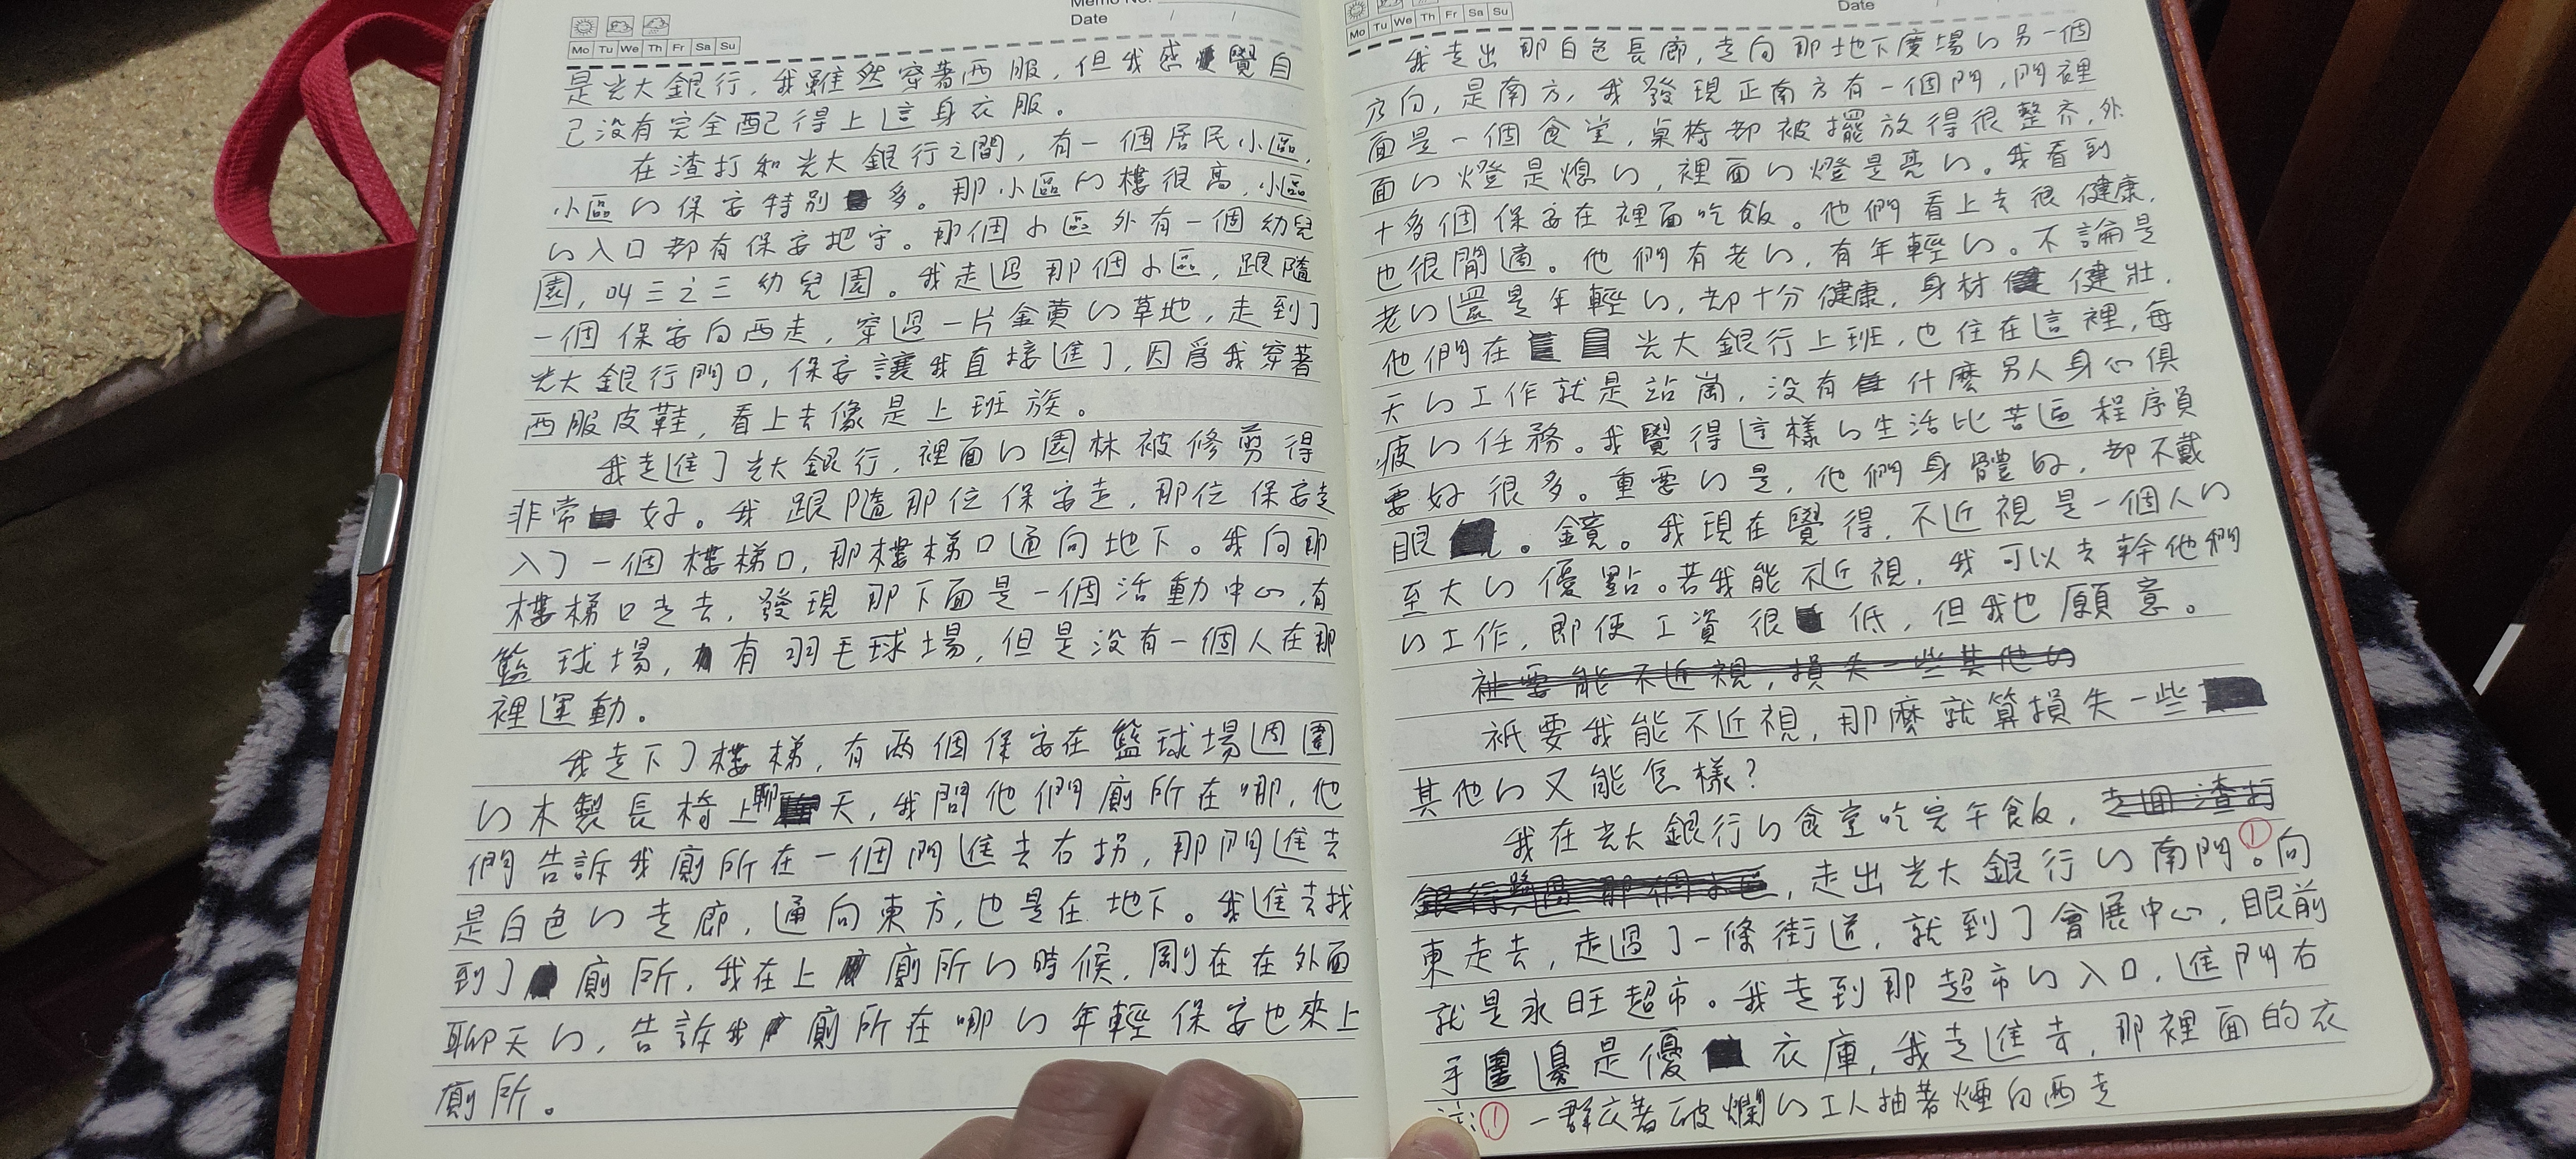 Memo No.
Date / /
Mo Tu We Th Fr Sa Su
是光大銀行，我雖然穿著西服，但我感覺自
己沒有完全配得上這身衣服。
在渣打和光大銀行之間，有一個居民小區，
小區的保安特別多。那小區的樓很高，小區
的入口都有保安把守。那個小區外有一個幼兒
園，叫三之三幼兒園。我走過那個小區，跟隨
一個保安向西走，穿過一片金黃的草地，走到了
光大銀行門口，保安讓我直接進了，因爲我穿著
西服皮鞋，看上去像是上班族。
我走進了光大銀行，裡面的園林被修剪得
非常好。我跟隨那位保安走，那位保安走
入了一個樓梯口，那樓梯口通向地下。我向那
樓梯口走去，發現那下面是一個活動中心，有
籃球場，有羽毛球場，但是沒有一個人在那
裡運動。
我走下了樓梯，有兩個保安在籃球場周圍
的木製長椅上聊天，我問他們廁所在哪，他
們告訴我廁所在一個門進去右拐，那門進去
是白色的走廊，通向東方，也是在地下。我進去找
到了廁所，我在上廁所的時候，剛在在外面
聊天的，告訴我廁所在哪的年輕保安也來上
廁所。
Date / /
Mo Tu We Th Fr Sa Su
我走出那白色長廊，走向那地下廣場的另一個
方向，是南方，我發現正南方有一個門，門裡
面是一個食堂，桌椅都被擺放得很整齐，外
面的燈是熄的，裡面的燈是亮的。我看到
十多個保安在裡面吃飯。他們看上去很健康，
也很閒適。他們有老的，有年輕的。不論是
老的還是年輕的，都十分健康，身材健壯，
他們在光大銀行上班，也住在這裡，每
天的工作就是站崗，沒有什麼另人身心俱
疲的任務。我覺得這樣的生活比苦逼程序員
要好很多。重要的是，他們身體好，都不戴
眼。鏡。我現在覺得，不近視是一個人的
至大的優點。若我能不近視，我可以去幹他們
的工作，即使工資很低，但我也願意。
祇要能不近視，損失一些其他的
祇要我能不近視，那麼就算損失一些
其他的又能怎樣？
我在光大銀行的食堂吃完午飯，走回渣打
銀行，路過那個小區，走出光大銀行的南門①。向
東走去，走過了一條街道，就到了會展中心，眼前
就是永旺超市。我走到那超市的入口，進門右
手邊是優衣庫，我走進去，那裡面的衣
注：① 一群衣著破爛的工人抽著煙向西走